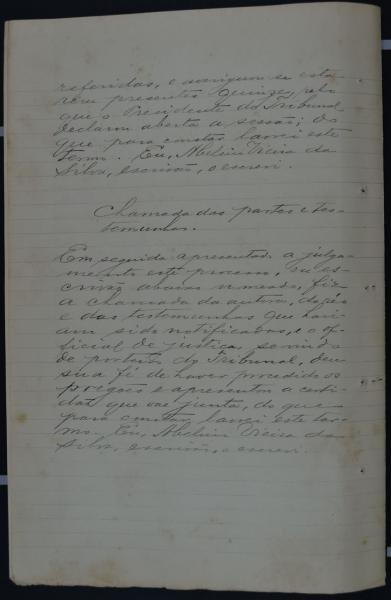 referidas, e averiguou se esta-
rem presentes Quinze, pelo
que o Presidente do Tribunal
declarou aberta a sessão; do
que para constar lavrei este
termo. Eu, Abelim Vieira da
Silva, escrivão, o escrevi.
Chamada das partes e tes-
temunhas.
Em seguida apresentado a julga-
mento este processo, eu es-
crivão abaixo nomeado, fiz
a chamada da autora, do réo
e das testemunhas que havi-
am sido notificadas, e o of-
ficial de justiça, servindo
de porteiro do Tribunal, deu
sua fé de haver procedido os
pregões e apresentou a certi-
dão que vae junta, do que
para constar lavrei este ter-
mo. Eu, Abelim Vieira da
Silva, escrivão, o escrevi.